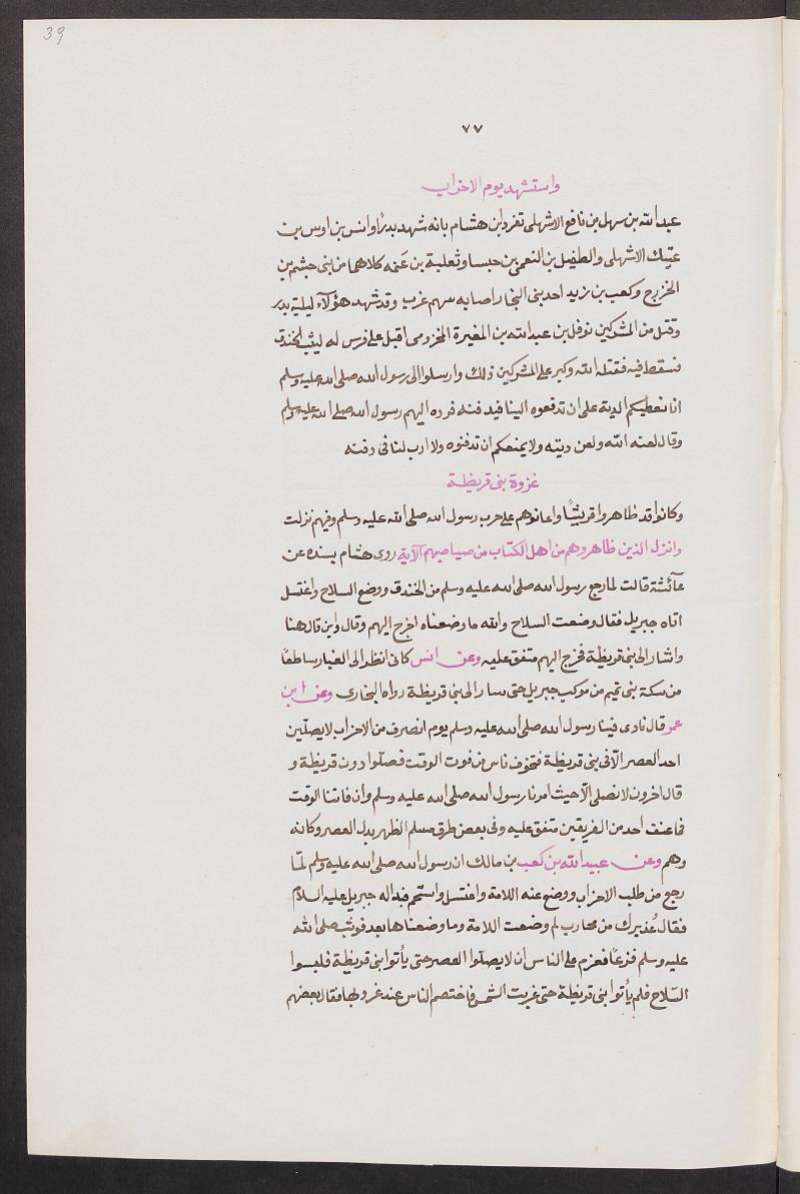 39
٧٧
واستشهد يوم الاحزاب
عبد الله بن سهل بن نافع الاشهلى تفرد ابن هشام بانه شهد بدرًا وانس بن اوس بن
عتيك الاشهلى والطفيل بن النعمن بن حبسا وثعلبة بن غنمه كلاهما من بنى جشم بن
الخزرج وكعب بن زيد احد بنى النجار اصابه سهم غرب وقد شهد هؤلآء ليلية بدر
وقتل من المشركين نوفل بن عبد الله بن المغيرة المخزومى اقبل على فرس له ليثب الخندق
فسقط فيه فقتله الله وكبر على المشركين ذلك وارسلوا الى رسول الله صلى الله عليه وسلم
انا نعطيكم الدية على ان تدفعوه الينا فيدفنه فرده اليهم رسول الله صلى الله عليه وسلم
وقال لعنه الله ولعن ديته ولا يمنعكم ان تدفنوه ولا ارب لنا فى دفنه
غزوة بنى قريظة
وكانوا قد ظاهروا قريشًا واعانوهم على حرب رسول الله صلى الله عليه وسلم وفيهم نزلت
وانزل الذين ظاهروهم من اهل الكتاب من صياصيهم الآية روى هشام بسنده عن
عآئشة قالت لما رجع رسول الله صلى الله عليه وسلم من الخندق ووضع السلاح واغتسل
اتاه جبريل فقال وضعت السلاح والله ما وضعناه اخرج اليهم وقال واين قال هنا
واشار الى بنى قريظة فخرج اليهم متفق عليه وعن انس كانى انظر الى الغبار ساطعًا
من سكة بنى تميم من موكب جبريل حتى سار الى بنى قريظة رواه البخارى وعن ابن
عمر قال نادى فينا رسول الله صلى الله عليه وسلم يوم انصرف من الاحزاب لا يصلين
احد العصر الّا فى بنى قريظة فتخوف ناس من فوت الوقت فصلّوا دون قريظة و
قال اخرون لا نصلى الّا حيث امرنا رسول الله صلى الله عليه وسلم وان فاتنا الوقت
فما عنف احد من الفريقين متفق عليه وفى بعض طرق مسلم الظهر بدل العصر وكانه
وهم وعن عبيد الله بن كعب بن مالك ان رسول الله صلى الله عليه وسلم لمّا
رجع من طلب الاحزاب ووضع عنه اللامة واغتسل واستجم فبدا له جبريل عليه السلام
فقال عُذيرك من محارب لم وضعت اللامة وما وضعناها بعد فوثب صلى الله
عليه وسلم فزعًا فعزم على الناس ان لا يصلّوا العصر حتى يأتوا بنى قريظة فلبسوا
السّلاح فلم يأتوا بنى قريظة حتى غربت الشمس فاختصم الناس عند غروبها فقال بعضهم